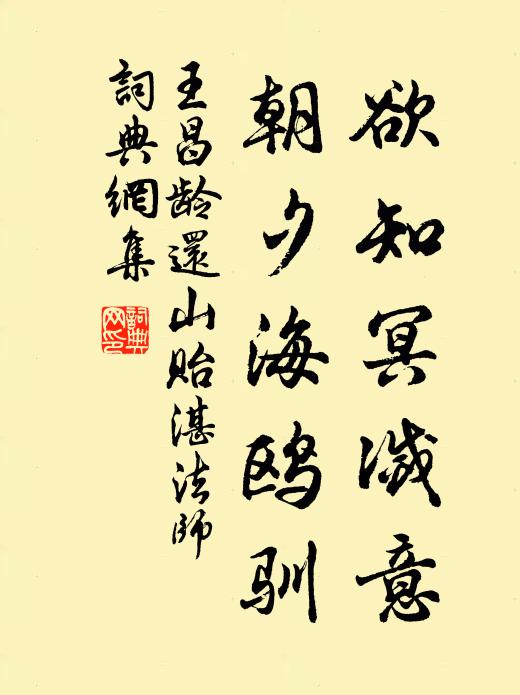 欲知冥滅意
朝夕海鸥驯
王昌龄還山贻湛法師
詞典網集
詞典网印